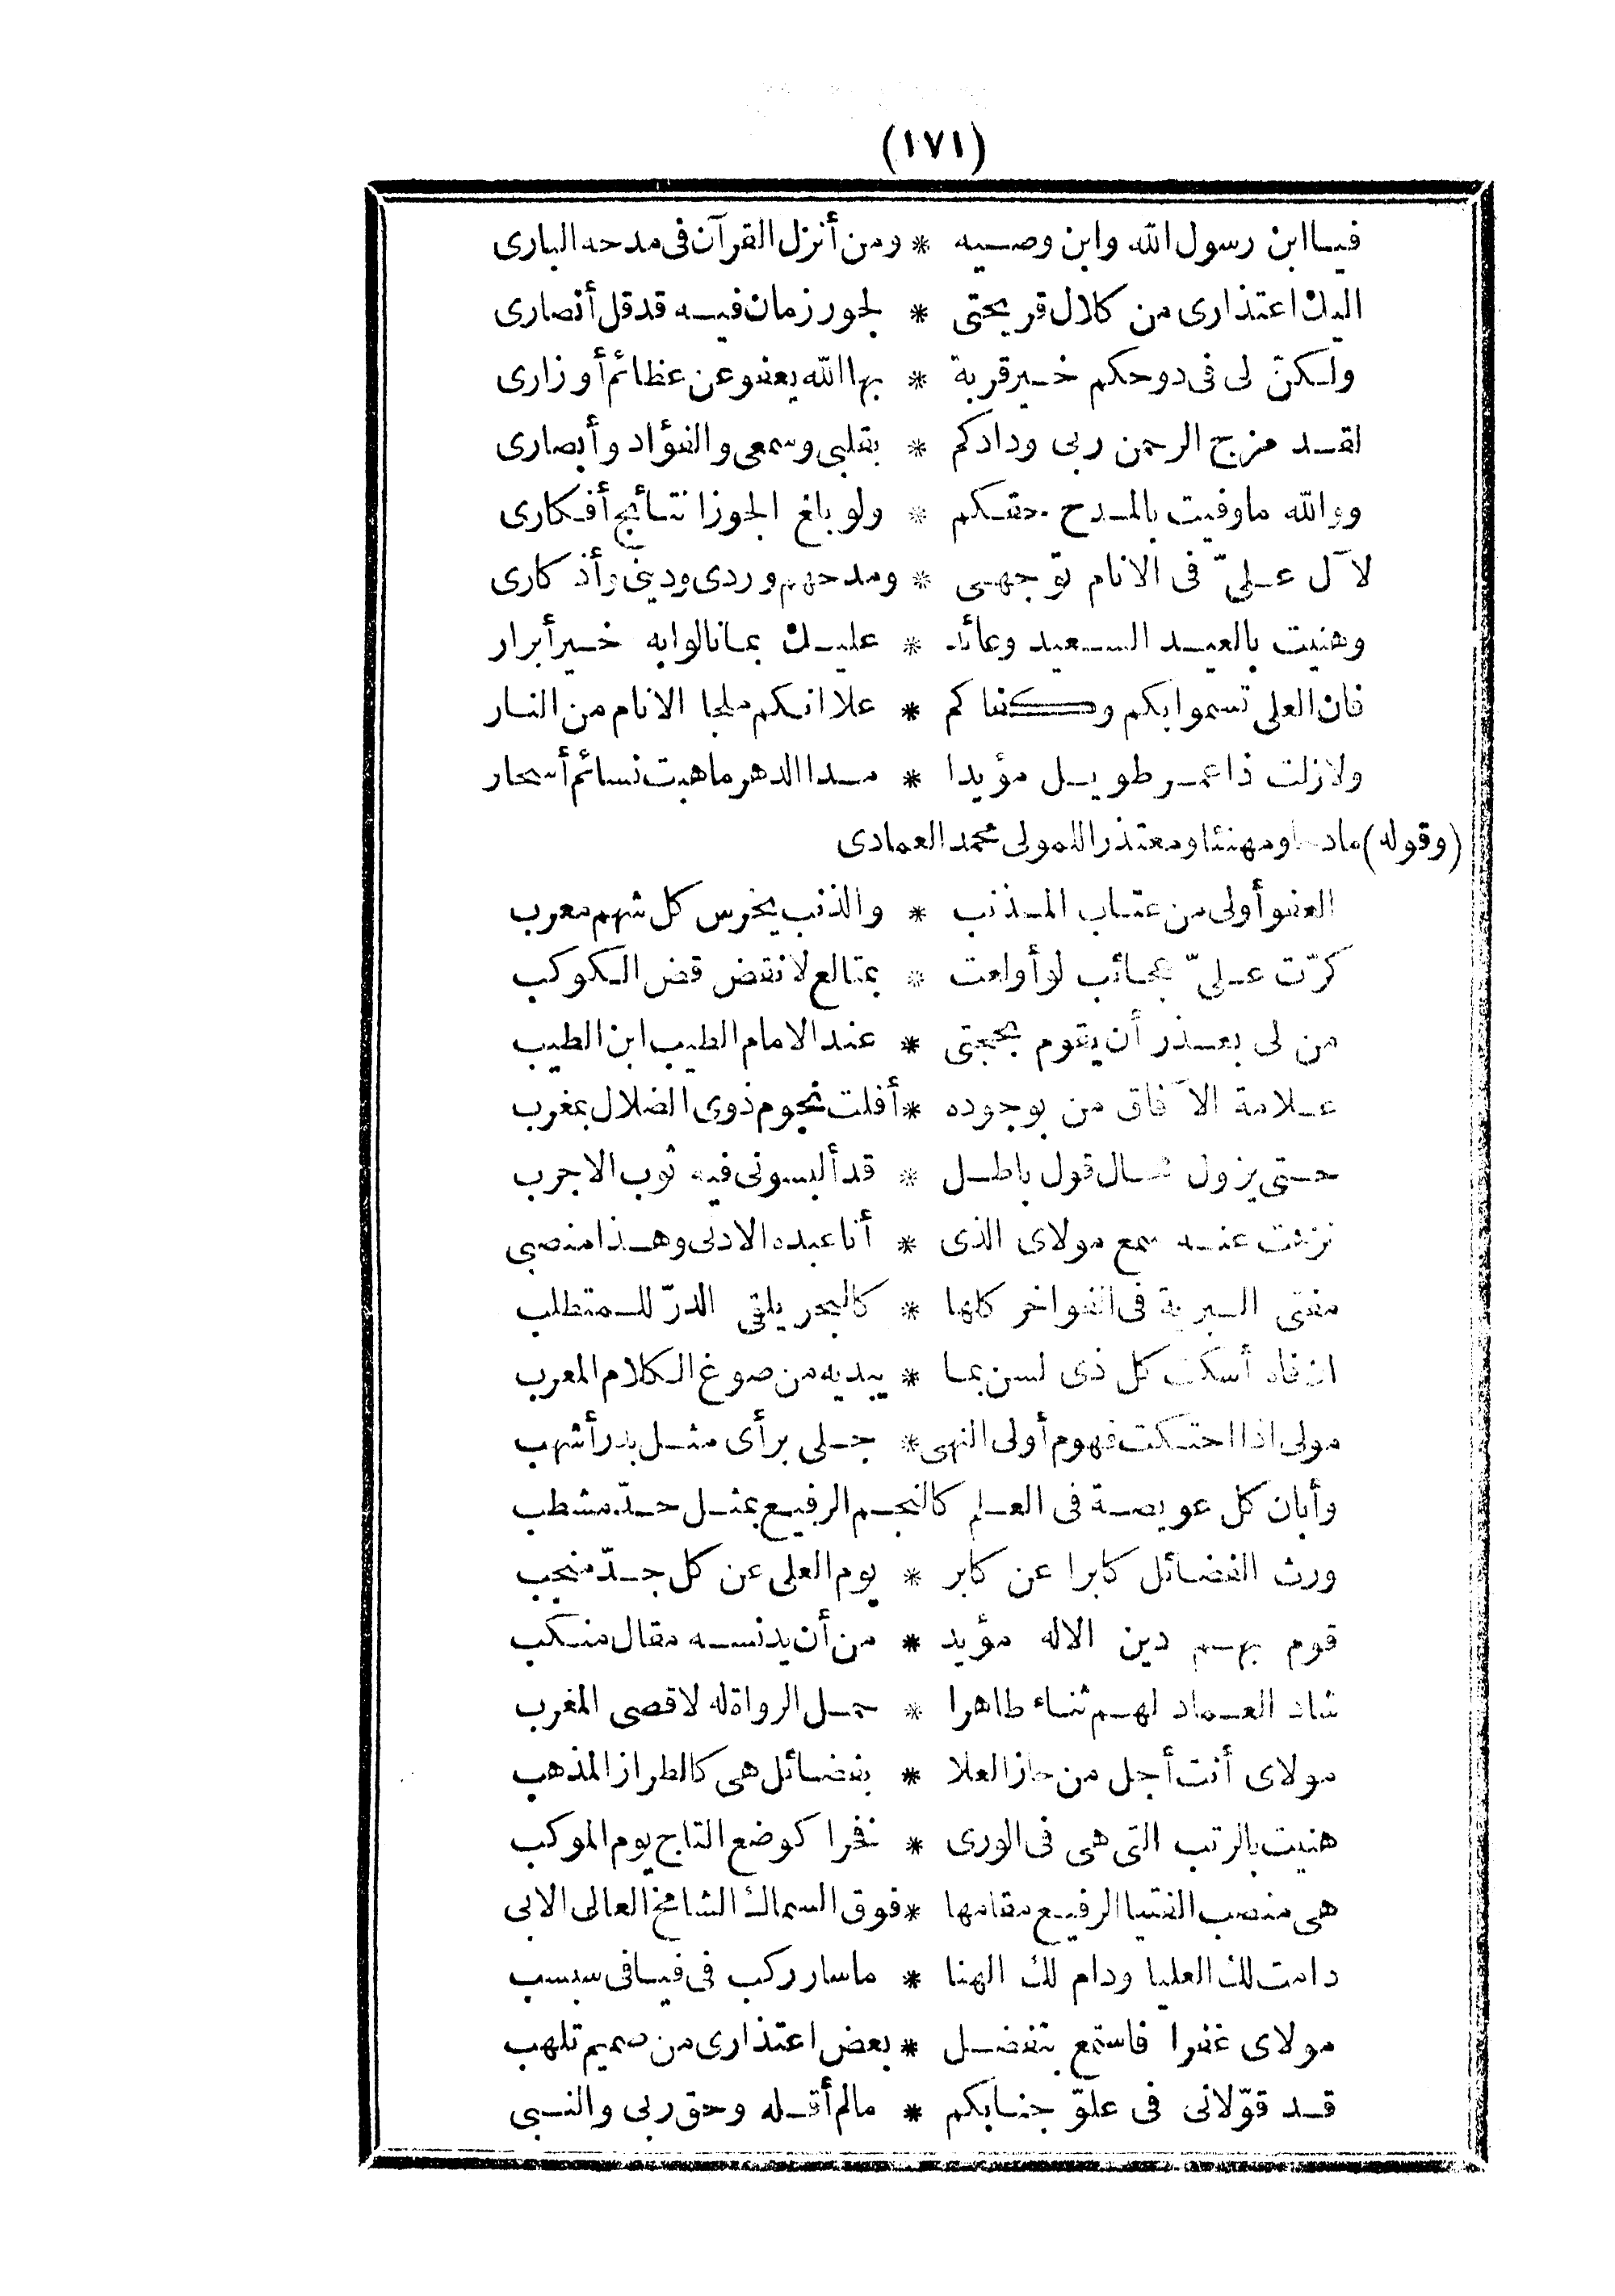 (١٧١)
فيا ابن رسول الله وابن وصيه * ومن أنزل القرآن فى مدحه البارى
اليك اعتذارى من كلال قريحتى * لجور زمان فيه قد قل أنصارى
ولكنّ لى فى دوحكم خير قربة * بها الله يعفو عن عظائم أوزارى
لقد مزج الرحمن ربى ودادكم * بقلبى وسمعى والفؤاد وأبصارى
ووالله ما وفيت بالمدح حقكم * ولو بلغ الجوزا نتائج أفكارى
لآل علىّ فى الانام توجهى * ومدحهم وردى ودينى وأذكارى
وهنيت بالعيد السعيد وعائد * عليك بما نالوا به خير أبرار
فان العلى تسموا بكم وكفاكم * علا انكم ملجا الانام من النار
ولا زلت ذا عمر طويل مؤيدا * مدا الدهر ما هبت نسائم أسحار
(وقوله) مادحا ومهنئا ومعتذرا للمولى محمد العمادى
العفو أولى من عتاب المذنب * والذنب يخرس كل شهم معرب
كرّت علىّ عجائب لو أولعت * بمتالع لانقض قض الكوكب
من لى بعذر أن يقوم بحجتى * عند الامام الطيب ابن الطيب
علامة الآفاق من بوجوده * أفلت نجوم ذوى الضلال بمغرب
حتى يزول قول باطل * قد ألبسونى فيه ثوب الاجرب
نزهت عنه سمع مولاى الذى * أنا عبده الادنى وهذا منصبى
مفتى البرية فى الفواخر كلها * كالبحر يلقى الدرّ للمتطلب
ان فاه أسكت كل ذى لسن بما * يبديه من صوغ الكلام المعرب
مولى اذا احتكت فهوم أولى النهى * جلى برأى مثل بدر أشهب
وأبان كل عويصة فى العلم كالنجم الرفيع بمثل حدّ مشطب
ورث الفضائل كابرا عن كابر * يوم العلى عن كل جدّ منجب
قوم بهم دين الاله مؤيد * من أن يدنسه مقال منكب
شاد العماد لهم ثناء طاهرا * حمل الرواة له لاقصى المغرب
مولاى أنت أجل من حاز العلا * بفضائل هى كالطراز المذهب
هنيت بالرتب التى هى فى الورى * فخرا كوضع التاج يوم الموكب
هى منصب الفتيا الرفيع مقامها * فوق السماك الشامخ العالى الابى
دامت لك العليا ودام لك الهنا * ما سار ركب فى فيافى سبسب
مولاى غفرا فاستمع بتفضل * بعض اعتذارى من صميم تلهب
قد قوّلانى فى علوّ جنابكم * مالم أقله وحق ربى والنبى